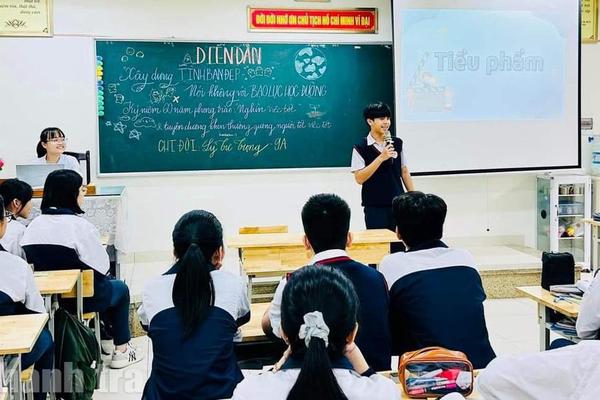 ĐỜI ĐỜI NHỚ ƠN CHỦ TỊCH HỒ CHÍ MINH VĨ ĐẠI
DIỄN ĐÀN
"Xây dựng TÌNH BẠN ĐẸP
Nói không với BẠO LỰC HỌC ĐƯỜNG
Kỷ niệm 60 năm phong trào: Nghìn việc tốt
& tuyên dương khen thưởng gương người tốt việc tốt
CHI ĐỘI: Lý Tự Trọng _ 9A
Tiểu phẩm